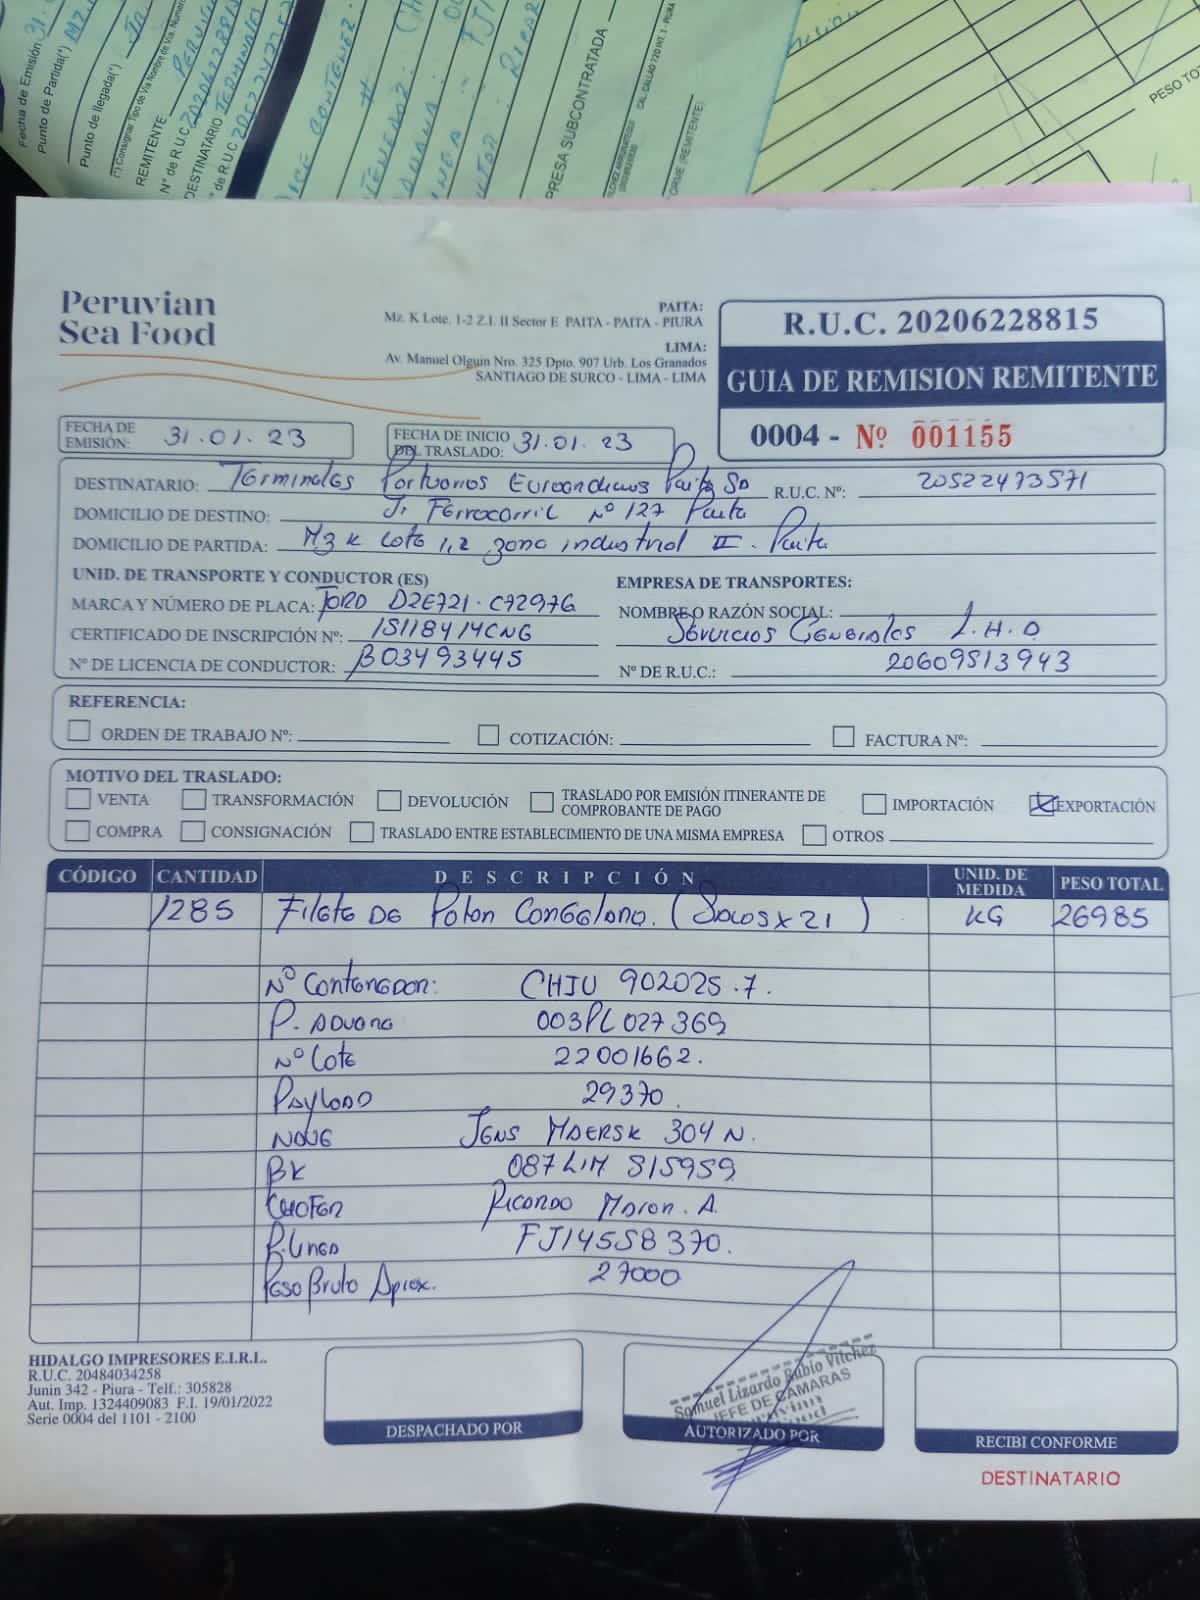 Fecha de Emisión 31.0
Punto de Partida(*) Mz.
Punto de llegada(*) Jr
(*) Consignar Tipo de Vía, Nombre de Vía, Numero
REMITENTE PERUVIA
N° de R.U.C 20206228815
DESTINATARIO TERMINALES
° de R.U.C 205224735
CONTENEZ
PRESA SUBCONTRATADA
CAL. CALLAO 720 INT. 1 - PIURA
ORME (REMITENTE)
PESO TOT
Peruvian
Sea Food
PAITA:
Mz. K Lote. 1-2 Z.I. II Sector E PAITA - PAITA - PIURA
LIMA:
Av. Manuel Olguin Nro. 325 Dpto. 907 Urb. Los Granados
SANTIAGO DE SURCO - LIMA - LIMA
R.U.C. 20206228815
GUIA DE REMISION REMITENTE
0004 - Nº 001155
FECHA DE EMISIÓN: 31.01.23
FECHA DE INICIO DEL TRASLADO: 31.01.23
DESTINATARIO: Terminales Portuarios Euroandinos Paita SA R.U.C. Nº: 20522473571
DOMICILIO DE DESTINO: Jr Ferrocarril Nº 127 Paita
DOMICILIO DE PARTIDA: Mz K Lote 1,2 zona industrial II - Paita
UNID. DE TRANSPORTE Y CONDUCTOR (ES)
EMPRESA DE TRANSPORTES:
MARCA Y NÚMERO DE PLACA: FORD D2E721 - C72976
NOMBRE O RAZÓN SOCIAL:
CERTIFICADO DE INSCRIPCIÓN Nº: 15118414CNG
Servicios Generales L.H.D.
Nº DE LICENCIA DE CONDUCTOR: B03493445
Nº DE R.U.C.: 20609513943
REFERENCIA:
ORDEN DE TRABAJO Nº: COTIZACIÓN: FACTURA Nº:
MOTIVO DEL TRASLADO:
VENTA TRANSFORMACIÓN DEVOLUCIÓN TRASLADO POR EMISIÓN ITINERANTE DE COMPROBANTE DE PAGO IMPORTACIÓN EXPORTACIÓN
COMPRA CONSIGNACIÓN TRASLADO ENTRE ESTABLECIMIENTO DE UNA MISMA EMPRESA OTROS
CÓDIGO CANTIDAD DESCRIPCIÓN UNID. DE MEDIDA PESO TOTAL
1285 Filete de Poton Congelado. (Sacos x 21) KG 26985
Nº Contenedor: CHIU 902025-7.
P. Aduana 003PL027369
Nº Lote 22001662.
Payload 29370.
Nave Jens Maersk 304 N.
BK 087LIM 515959
Chofer Ricardo Moron. A.
P. Linea FJ14558370.
Peso Bruto Aprox. 27000
HIDALGO IMPRESORES E.I.R.L.
R.U.C. 20484034258
Junin 342 - Piura - Telf.: 305828
Aut. Imp. 1324409083 F.I. 19/01/2022
Serie 0004 del 1101 - 2100
DESPACHADO POR
Samuel Lizardo Rubio Vilchez
JEFE DE CAMARAS
AUTORIZADO POR
RECIBI CONFORME
DESTINATARIO